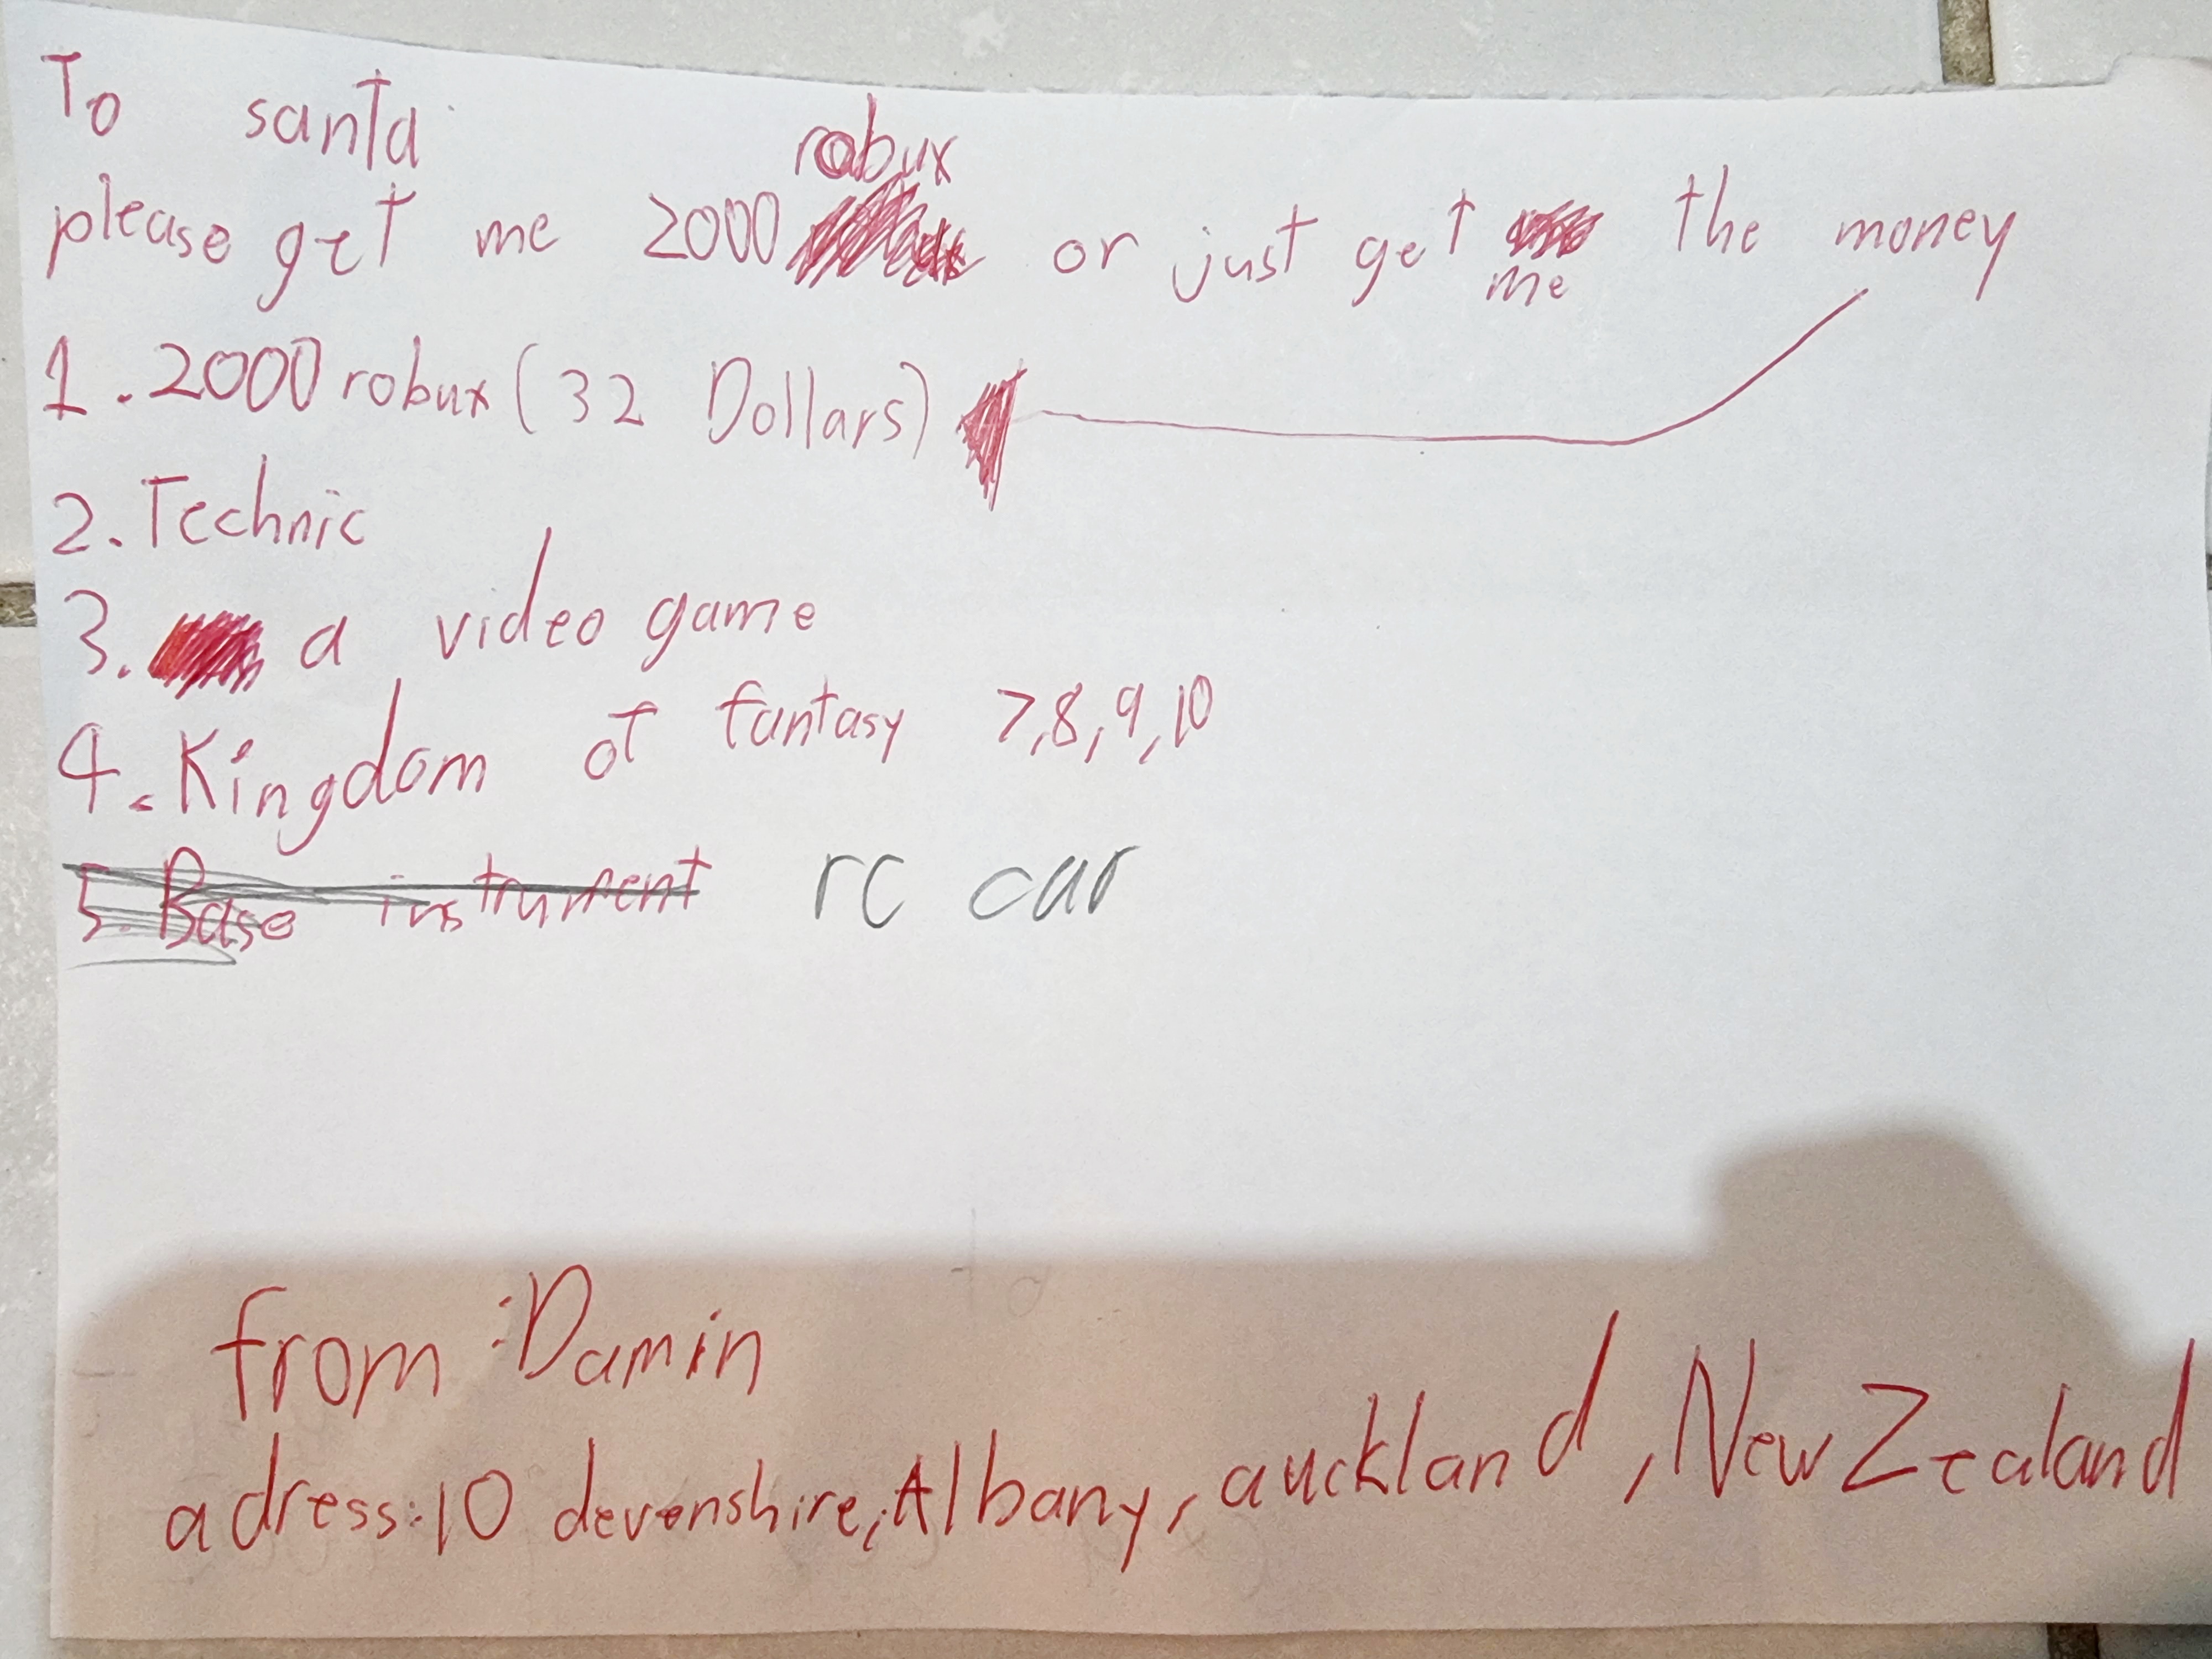 To santa
please get me 2000 robux or just get me the money
1. 2000 robux (32 Dollars)
2. Technic
3. a video game
4. Kingdom of fantasy 7,8,9,10
5. Base instrument rc car
from: Damin
adress: 10 devonshire, Albany, auckland, New Zealand